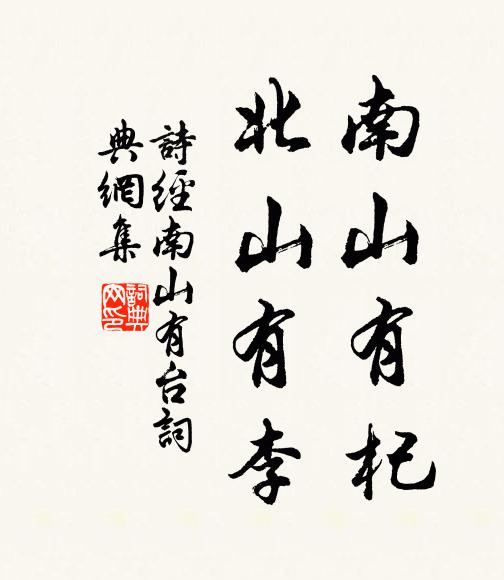 南山有杞
北山有李
詩經南山有台詞
典網集
詞典
网印